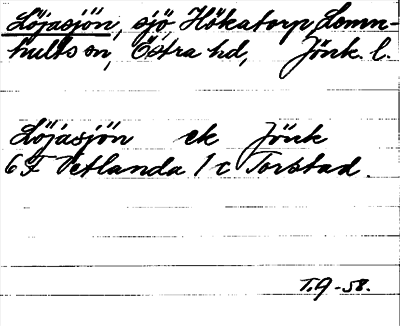 Löjasjön, sjö, Hökatorp, Lemn-
hults sn, Östra hd, Jönk. l.
Löjasjön ek Jönk
6 F Vetlanda 1 c Torstad.
T.G-58.